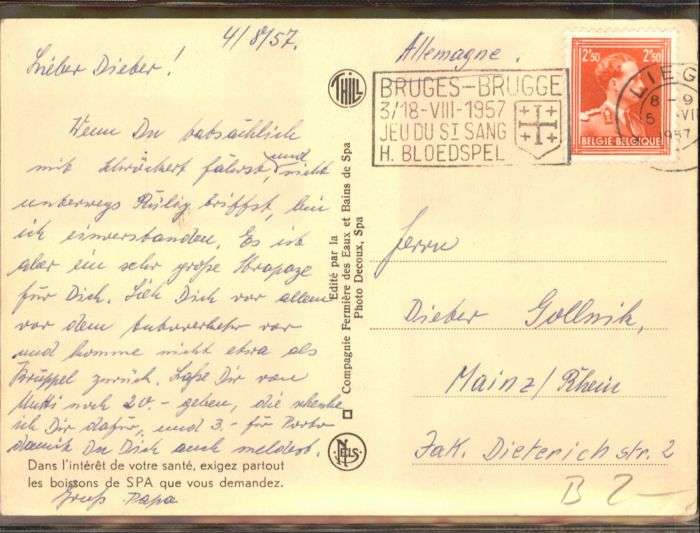 4/8/57.
Lieber Dieter!
Wenn Du tatsächlich
mit Schröckert fährst, und nicht
unterwegs Rülig triffst, bin
ich einverstanden. Es ist
aber ein sehr große Strapaze
für Dich. Sieh Dich vor allem
vor dem Autoverkehr vor
und komme nicht etwa als
Krüppel zurück. Laße Dir von
Mutti noch 20.- geben, die schenke
ich Dir dafür, und 3.- für Porto
damit Du Dich auch meldest.
Dans l'intérêt de votre santé, exigez partout
les boissons de SPA que vous demandez.
Gruß Papa
THILL
Edité par la
Compagnie Fermière des Eaux et Bains de Spa
Photo Decoux, Spa
NELS
Allemagne.
BRUGES-BRUGGE
3/18-VIII-1957
JEU DU ST SANG
H. BLOEDSPEL
LIEG
8-9
5 -VII
1957
2F50 2F50
BELGIE-BELGIQUE
Herrn
Dieter Gollnik,
Mainz/Rhein
Jak. Dieterichstr. 2
B 2-